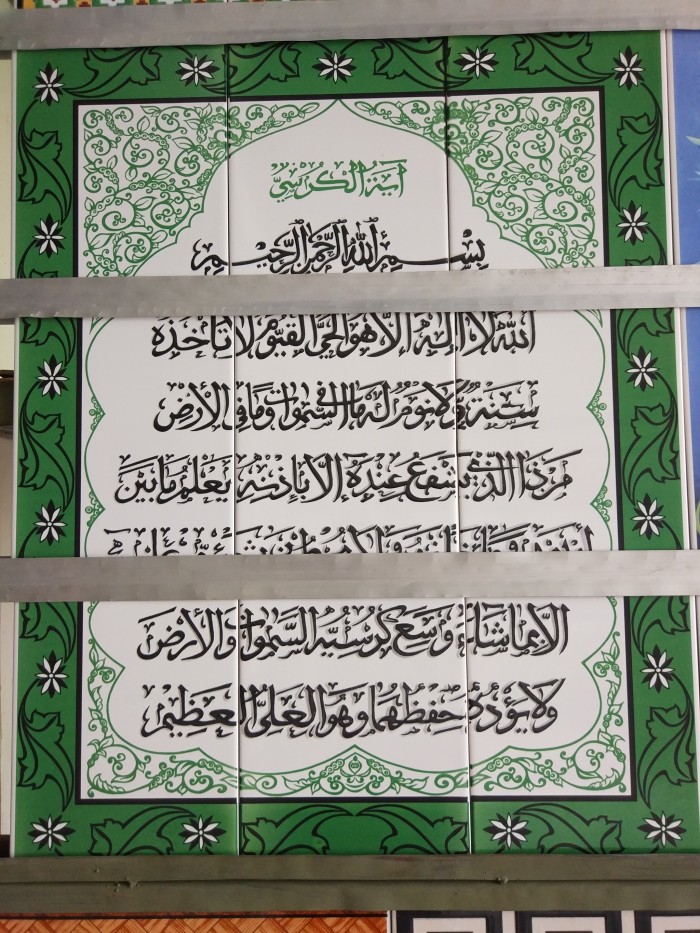 آية الكرسي
بسم الله الرحمن الرحيم
الله لا إله إلا هو الحي القيوم لا تأخذه
سنة ولا نوم له ما في السموات وما في الأرض
من ذا الذي يشفع عنده إلا بإذنه يعلم ما بين
إلا بما شاء وسع كرسيه السموات والأرض
ولا يؤده حفظهما وهو العلي العظيم